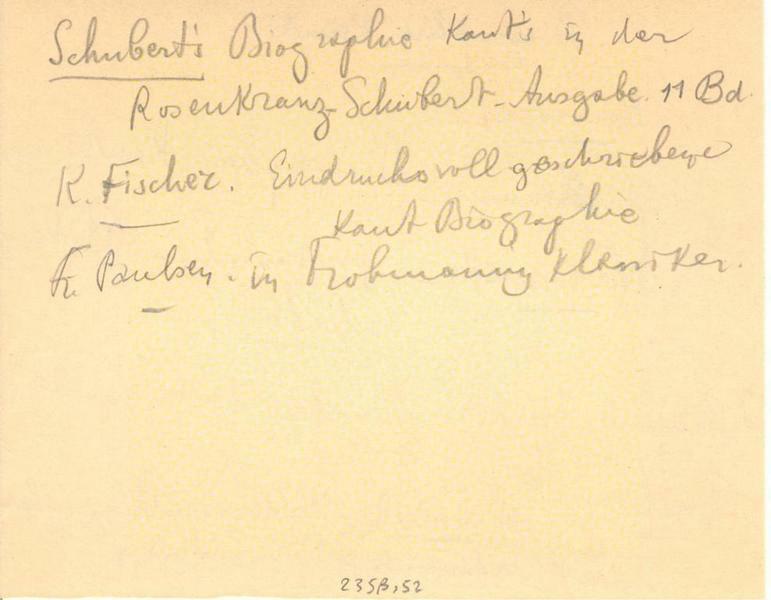 Schubert's Biographie Kant's in der
Rosenkranz-Schubert-Ausgabe. 11 Bd.
K. Fischer. Eindrucksvoll geschriebene
Kant Biographie
Fr. Paulsen. in Frohmanns Klassiker.
235B,52